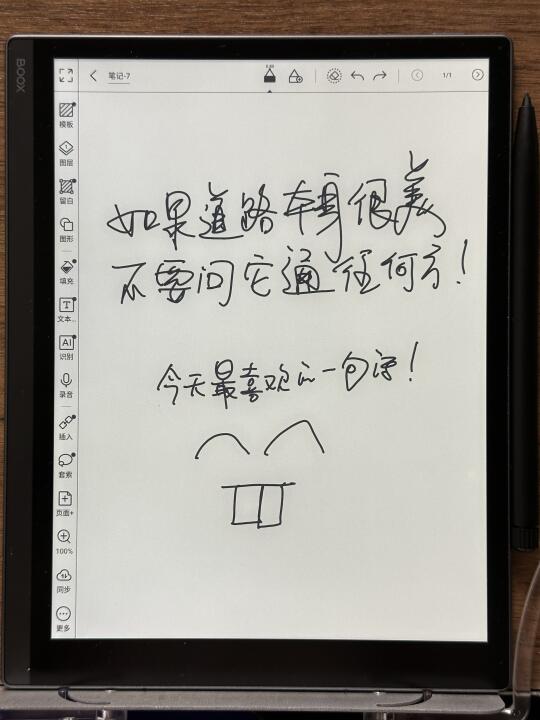 BOOX
笔记-7
1/1
模板
图层
留白
图形
填充
文本...
AI
识别
录音
插入
套索
页面+
100%
同步
更多
如果道路本身很美
不要问它通往何方！
今天最喜欢的一句话！